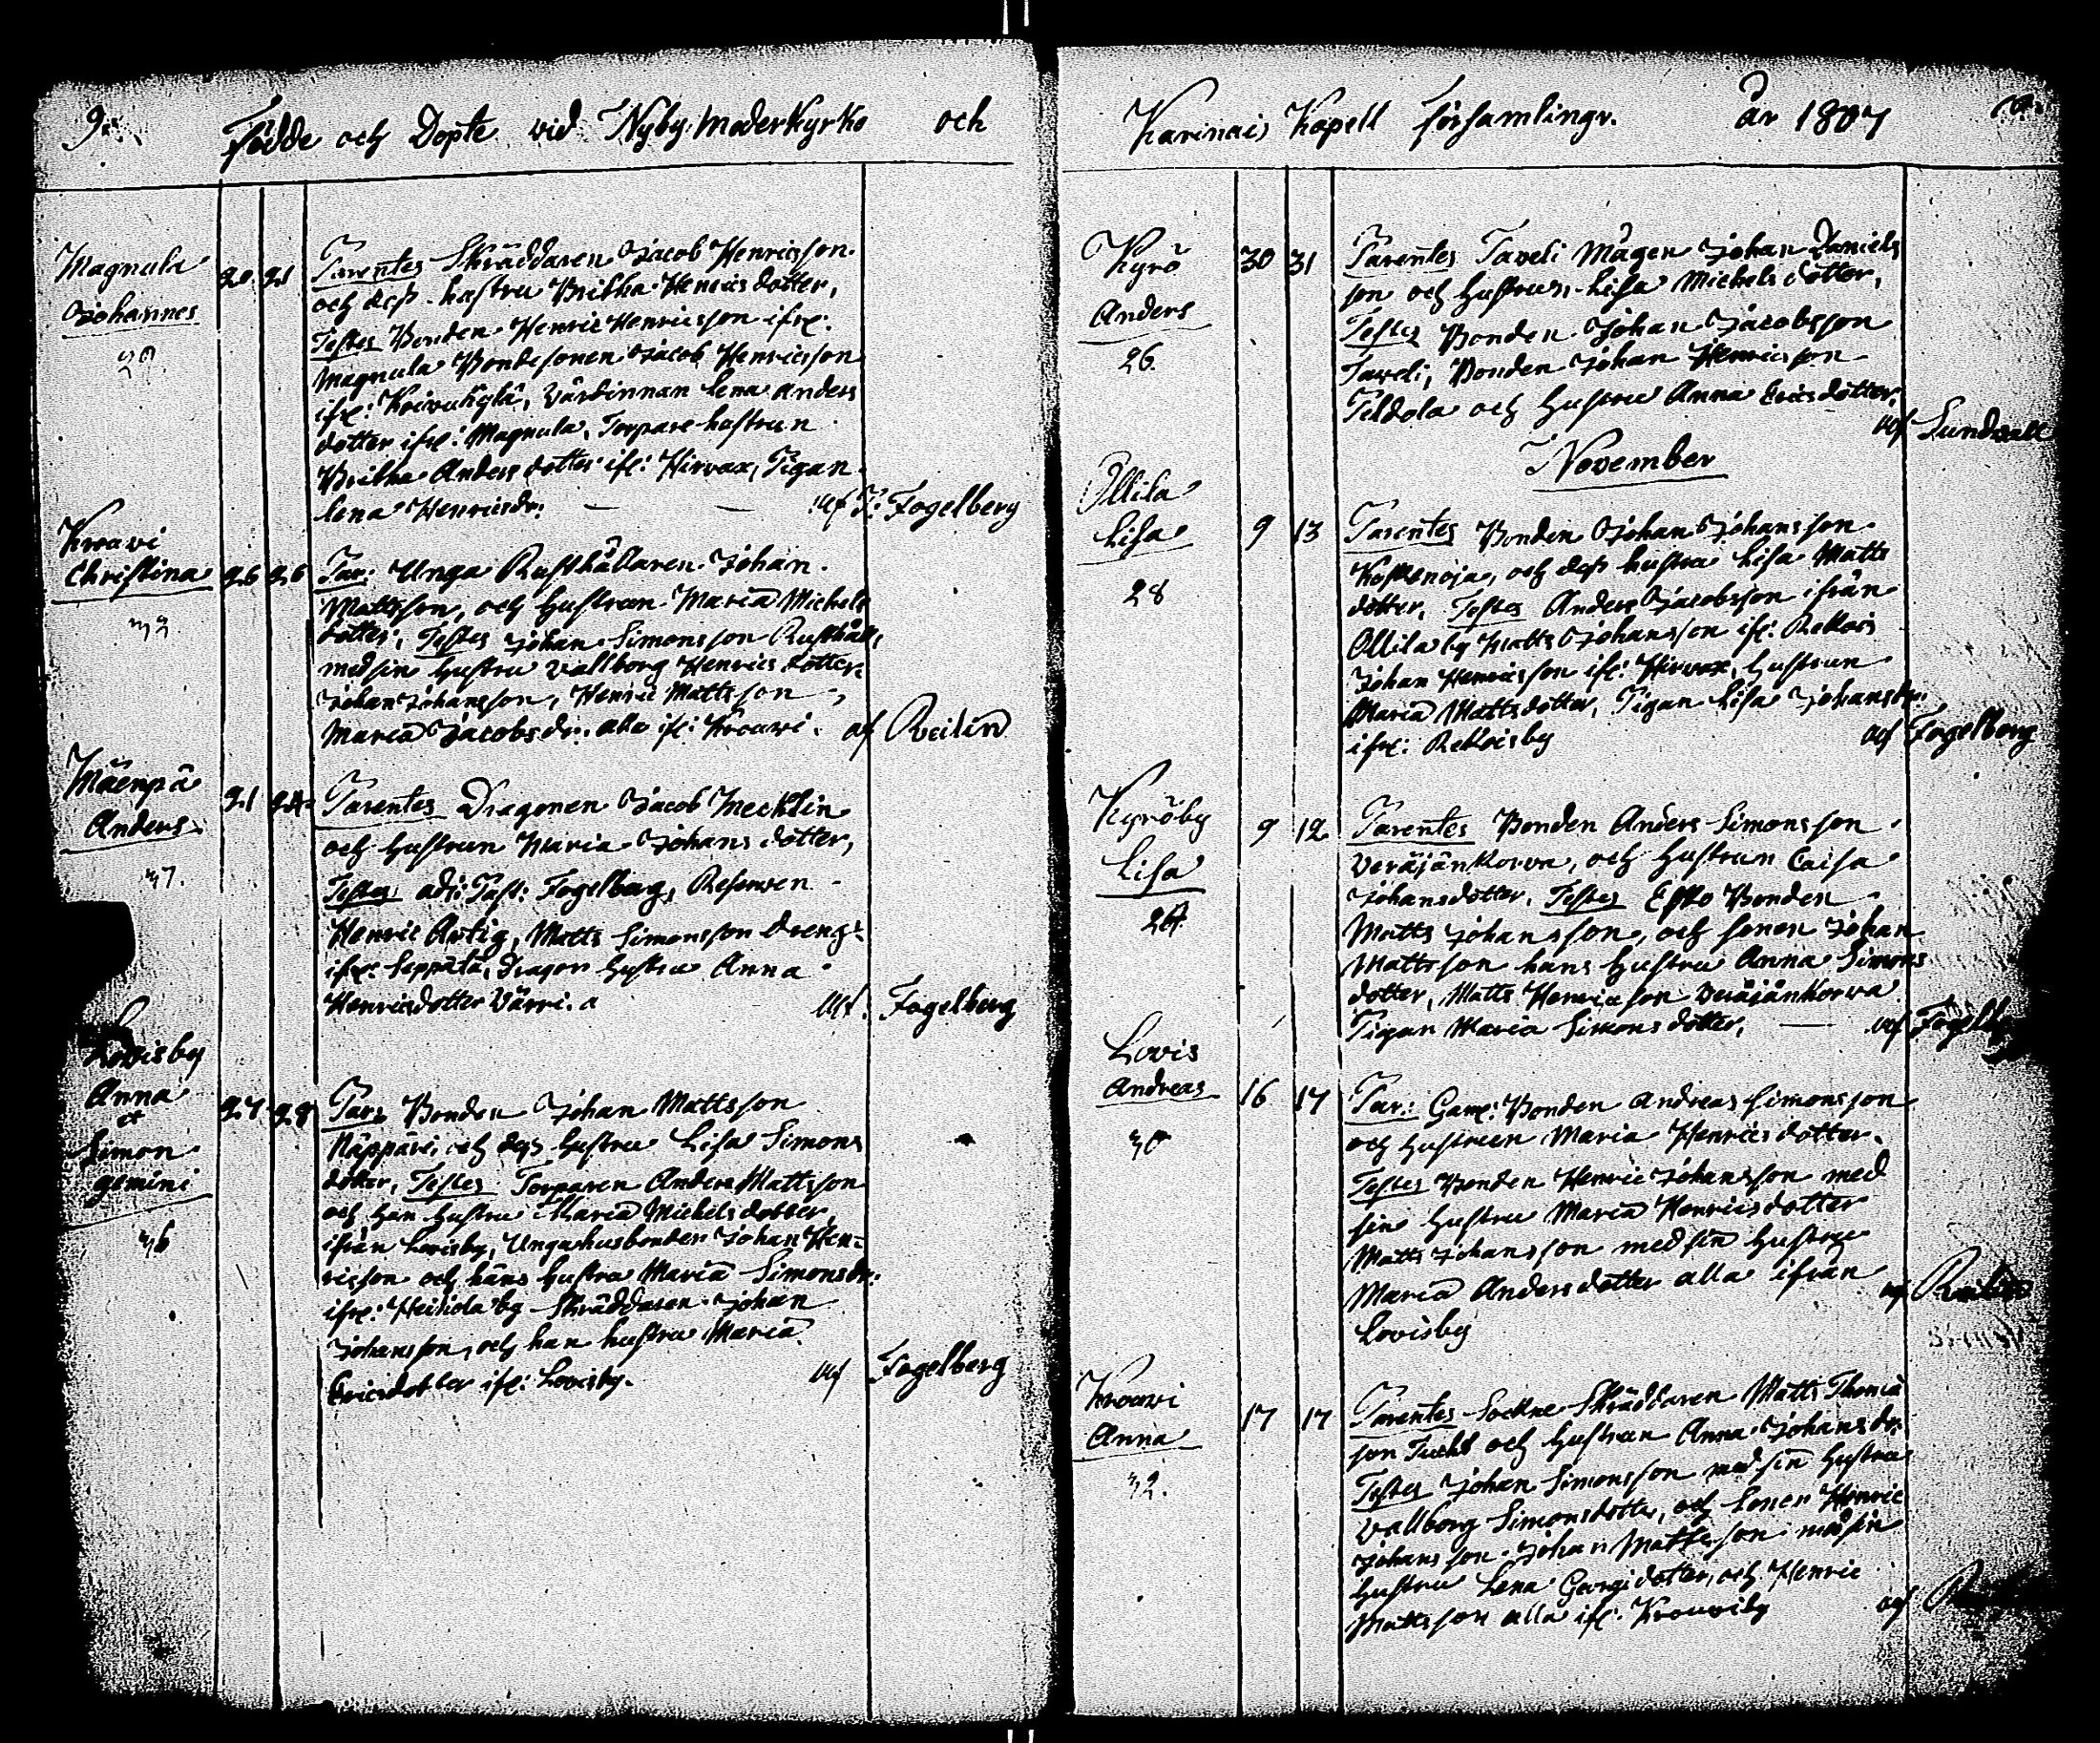 9.
Födde och Döpte vid Nyby Moderkyrko och
Magnula
Johannes
20 21
Parentes Skräddaren Jacob Henricsson
och dess hustru Britha Henricsdotter,
Testes Bonden Henric Henricsson ifr:
Magnula Bondesonen Jacob Henricsson
ifr: Krivukylä, Värdinnan Lena Anders
dotter ifr: Magnula, Torpare hustrun
Britha Andersdotter ifr: Hirvax, Pigan
Lena Henricsdr: — — af Fogelberg
Krouvi
Christina
26 26
Par: Unga Rusthållaren Johan
Mattsson, och hustrun Maria Michels
dotter, Testes Johan Simonsson Rusthåll:
med sin hustru Vallborg Henrics dotter
Johan Johansson, Henric Mattsson
Maria Jacobsdr. alla ifr: Krouvi. af Reilin
Mäenpä
Anders
37.
21 24
Parentes Dragonen Jacob Mecklin
och hustrun Maria Johansdotter,
Testes adj: Past: Fogelberg, Reserven
Henric Artig, Matts Simonsson dreng
ifr: Seppälä, Dragon hustru Anna
Henricsdotter Värri. af Fogelberg
Lovisby
Anna
et
Simon
gemini
36
27 28
Par: Bonden Johan Mattsson
Näppäri och dess hustru Lisa Simons
dotter, Testes Torparen Anders Mattsson
och han hustru Maria Michelsdotter
ifrån Lovisby, Unga husbonden Johan Hen=
ricsson och hans hustru Maria Simonsdr:
ifr: Heikola by Skräddaren Johan
Johansson, och han hustru Maria
Ericsdotter ifr: Lovisby. af Fogelberg
Karinais Kapell församlingr. år 1807
Kyrö
Anders
26.
30 31
Parentes Taveli Mågen Johan Daniels
son och hustrun Lisa Michelsdotter,
Testes Bonden Johan Jacobsson
Taveli, Bonden Johan Henricsson
Tildola och hustru Anna Ericsdotter.
af Sundvall
November
Ollila
Lisa
28
9 13
Parentes Bonden Johan Johansson
Koskenoja, och dess hustru Lisa Matts
dotter, Testes Anders Jacobsson ifrån
Ollila by Matts Johansson ifr: Rekois
Johan Henricsson ifr: Hirvax, hustrun
Maria Mattsdotter, Pigan Lisa Johansdr.
ifr: Rekoisby af Fogelberg
Kyröby
Lisa
24
9 12
Parentes Bonden Anders Simonsson
Veräjänkorva, och hustrun Caisa
Johansdotter, Testes Esko Bonden
Matts Johansson, och sonen Johan
Mattsson hans hustru Anna Simons
dotter, Matts Henricsson Veräjänkorva
Pigan Maria Simonsdotter, — af
Lovis
Andreas
30
16 17
Par: Gam: Bonden Andreas Simonsson
och hustruen Maria Henricsdotter.
Testes Bonden Henric Johansson med
sin hustru Maria Henricsdotter
Matts Johansson med sin hustru
Maria Andersdotter alla ifrån af Reilin
Lovisby
Krouvi
Anna
32.
17 17
Parentes Sockne Skräddaren Matts Thomæ
son och hustrun Anna Johansdr.
Testes Johan Simonsson med sin hustru
Vallborg Simonsdotter, och sonen Henric
Johansson. Johan Mattsson med sin
hustru Lena Georgidotter, och Henric
Mattsson alla ifr: Krouviby af